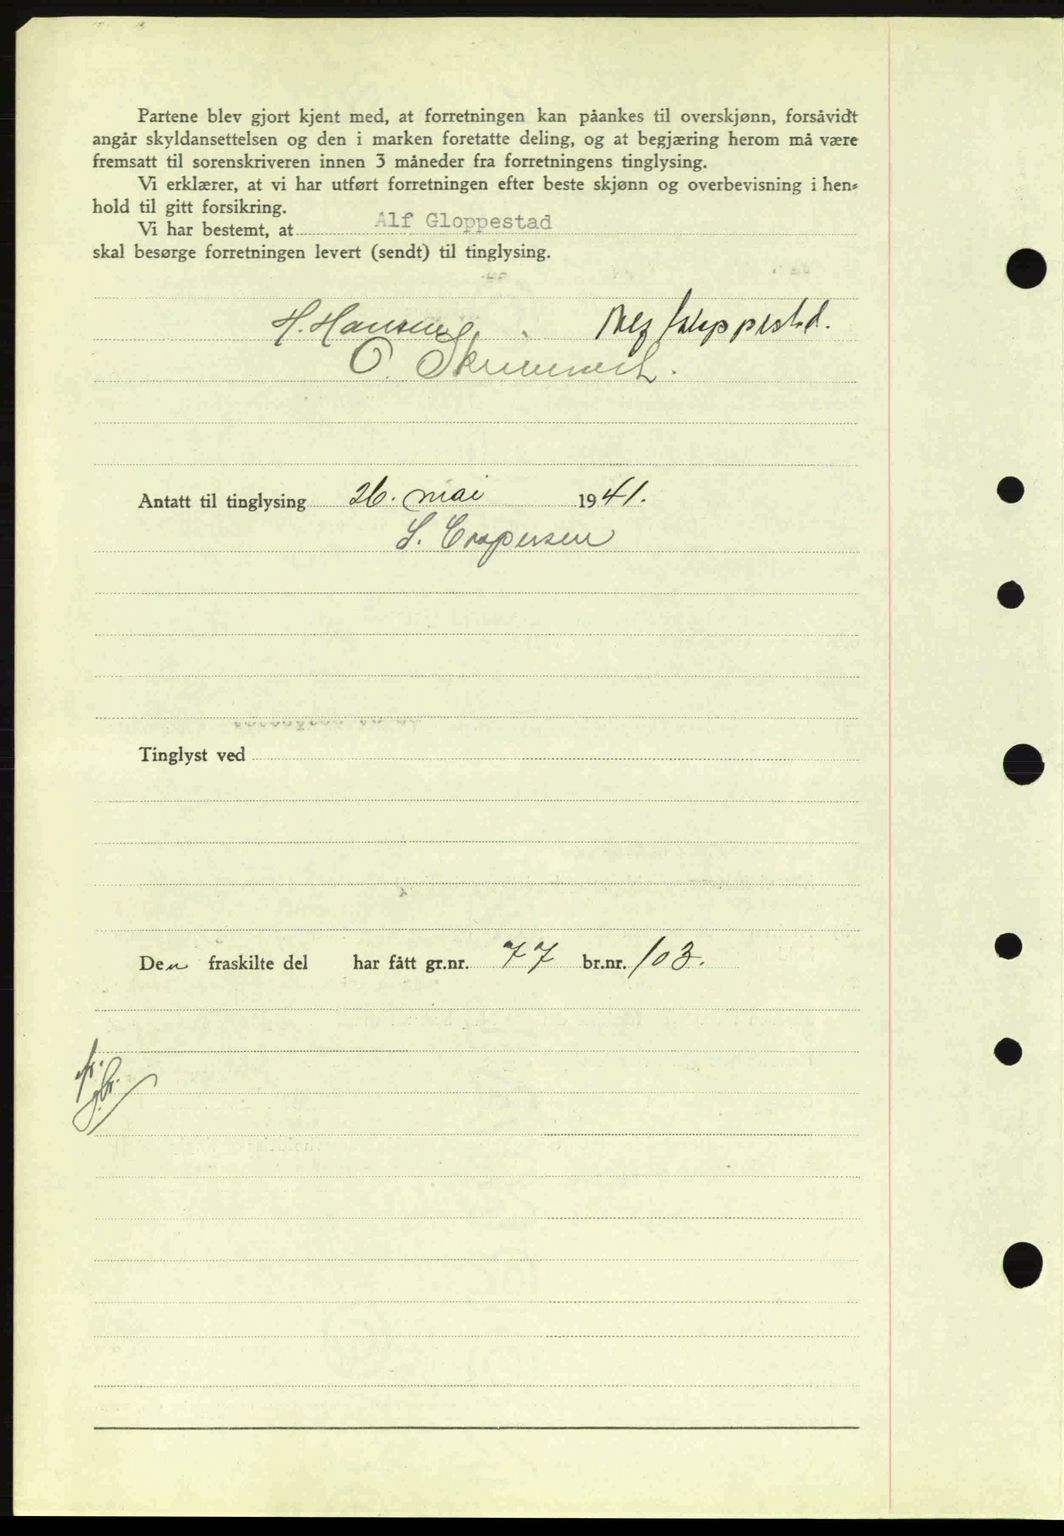 Partene blev gjort kjent med, at forretningen kan påankes til overskjønn, forsåvidt
angår skyldansettelsen og den i marken foretatte deling, og at begjæring herom må være
fremsatt til sorenskriveren innen 3 måneder fra forretningens tinglysing.
Vi erklærer, at vi har utført forretningen efter beste skjønn og overbevisning i hen-
hold til gitt forsikring.
Vi har bestemt, at Alf Gloppestad
skal besørge forretningen levert (sendt) til tinglysing.
H. Hansen. Alf Gloppestad.
O.
Antatt til tinglysing 26. mai 1941.
Tinglyst ved
Den fraskilte del har fått gr.nr. 77 br.nr. 103.